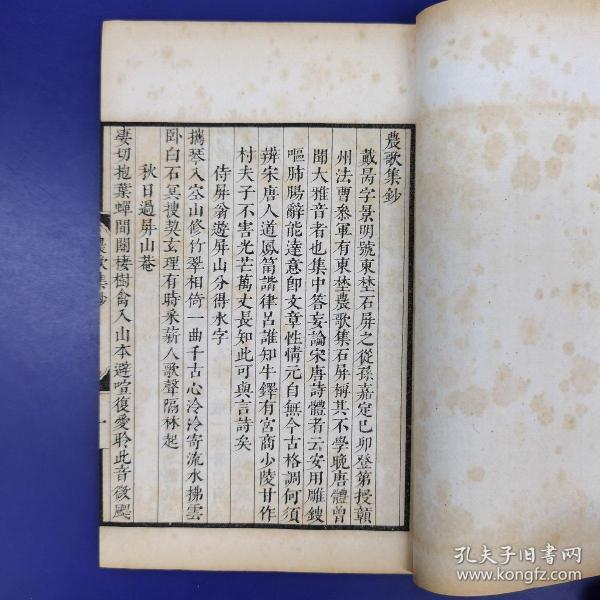 農歌集鈔
戴昺字景明號東埜石屏之從孫嘉定己卯登第授贛
州法曹叅軍有東埜農歌集石屏稱其不學晚唐體曾
聞大雅音者也集中答妄論宋唐詩體者云安用雕鎪
嘔肺腸辭能達意卽文章性情元自無今古格調何須
辨宋唐人道鳳筩諧律呂誰知牛鐸有宮商少陵甘作
村夫子不害光芒萬丈長知此可與言詩矣
侍屏翁遊屏山分得水字
攜琴入空山修竹翠相倚一曲千古心泠泠寄流水拂雲
卧白石冥搜契玄理有時采薪人歌聲隔林起
秋日過屏山菴
淒切抱葉蟬間關棲樹禽入山本避喧復愛聆此音微颸
農歌集鈔
一
孔夫子旧书网
www.kongfz.com